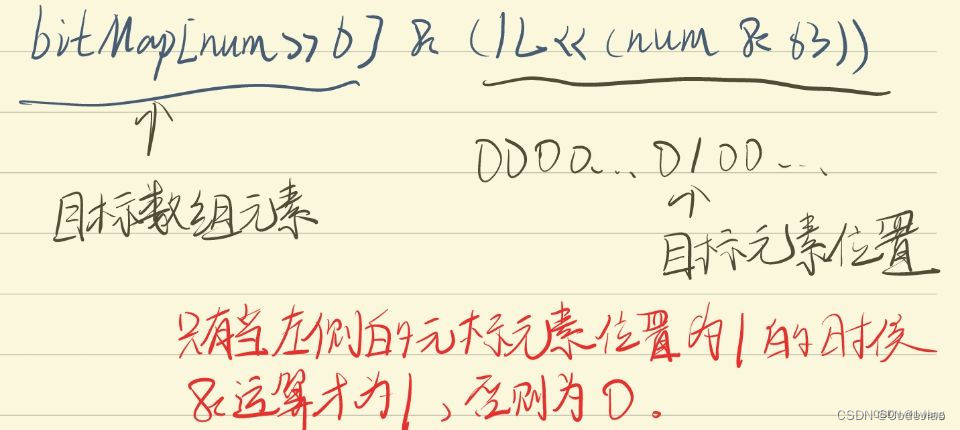 bitMap[num>>6] & (1L<<(num & 63))
0000... 0100...
目标数组元素
目标元素位置
只有当左侧的元标元素位置为1的时候
&运算才为1，否则为0。
CSDN